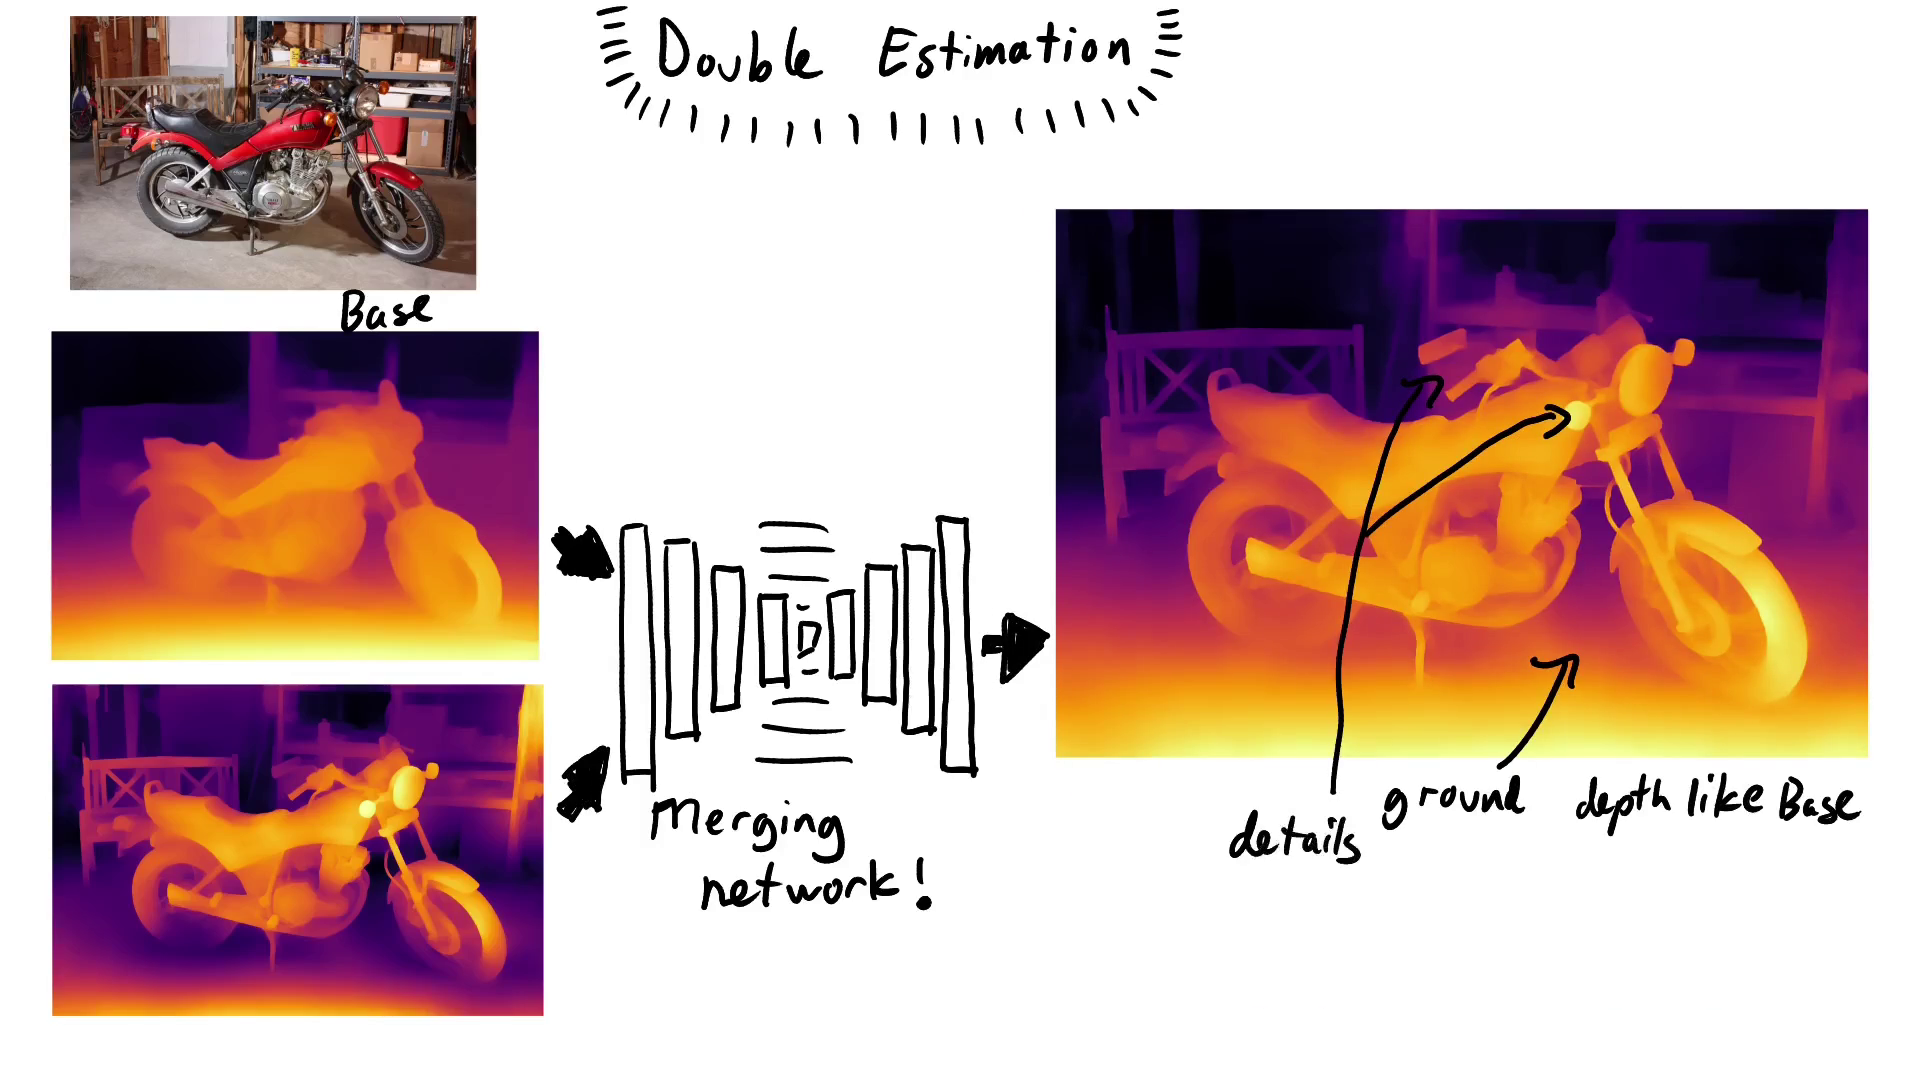 Double Estimation
Base
Merging
network!
details
ground depth like Base